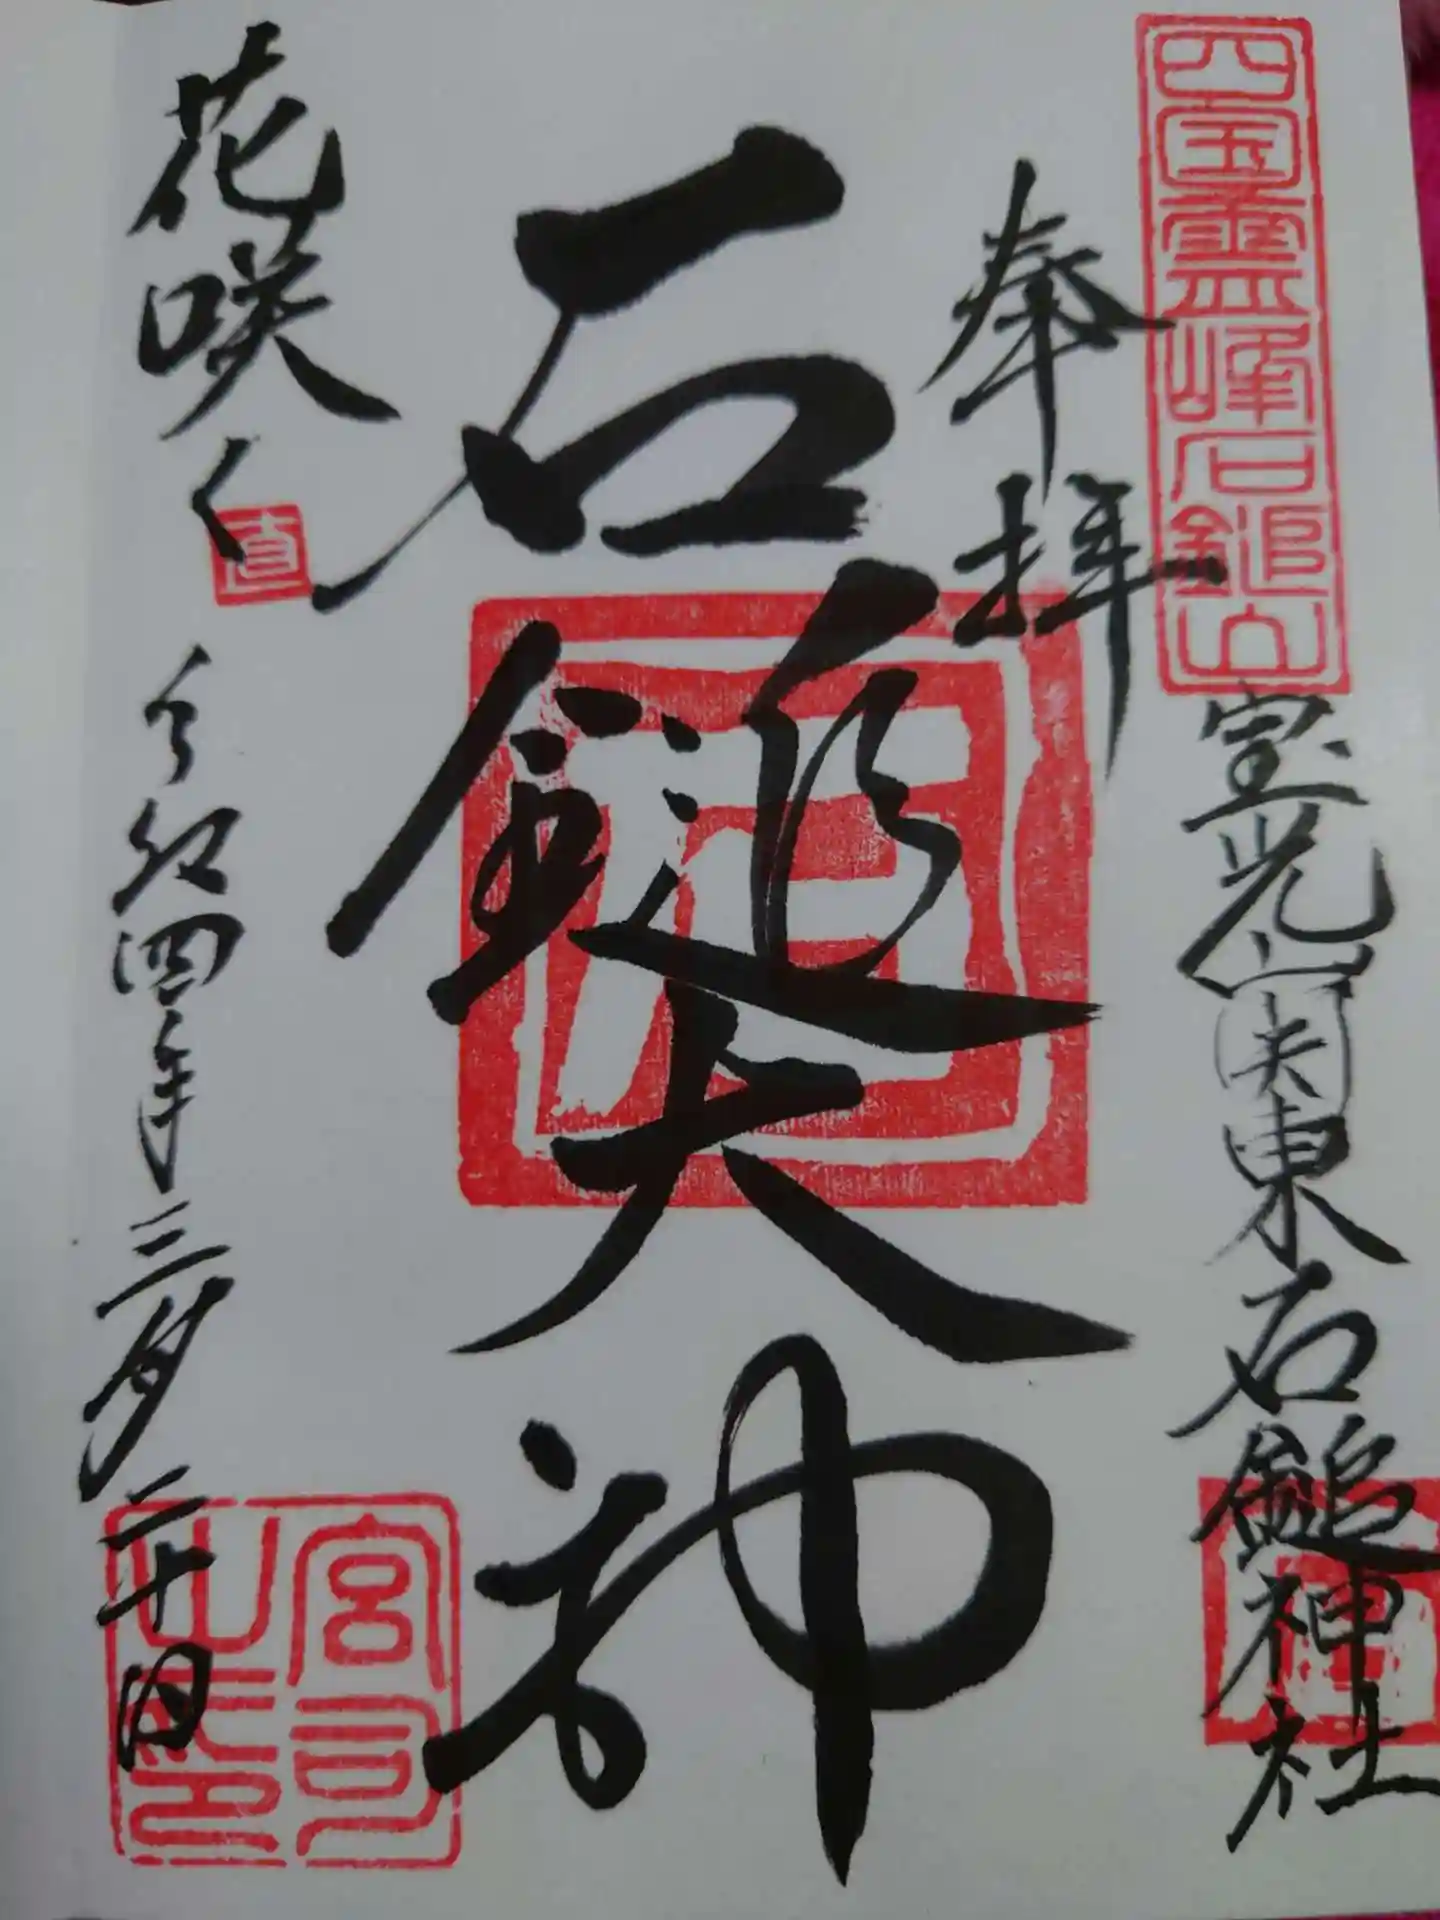 四国霊峰石鎚山
宝光山関東石鎚神社
奉拝
石鎚大神
花咲く
直
令和四年三月二十日
宮司
之印